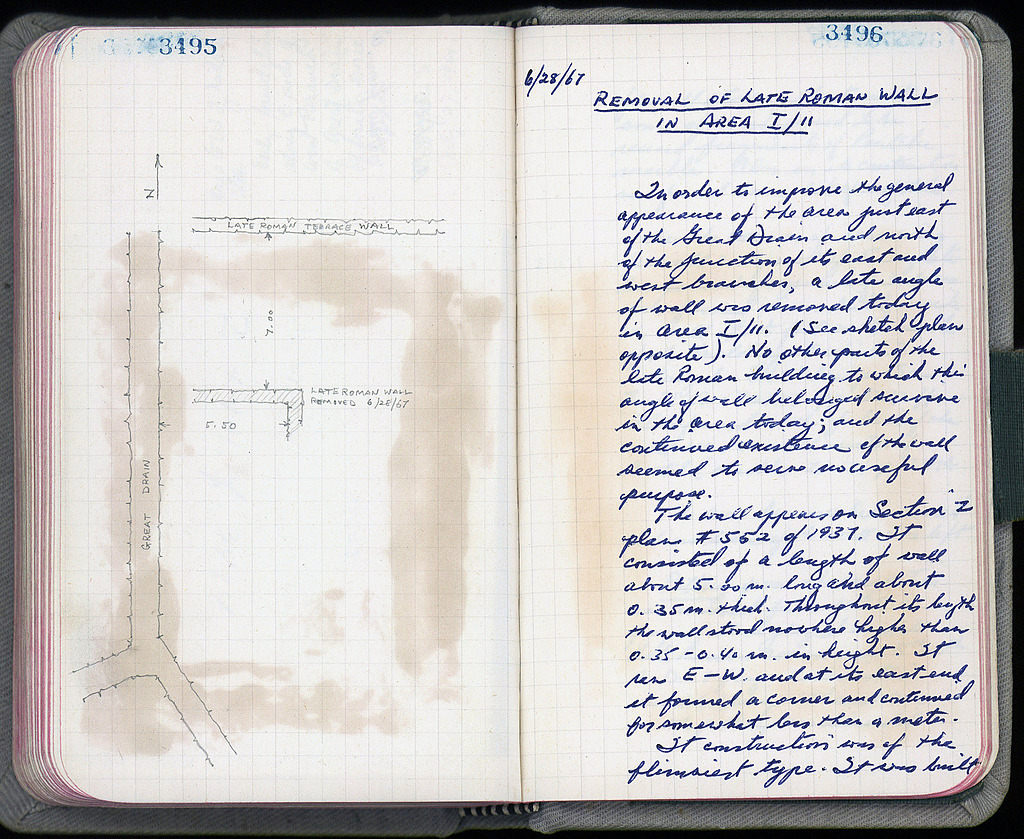 3495
N
LATE ROMAN TERRACE WALL
7.00
LATE ROMAN WALL
REMOVED 6/28/67
5.50
GREAT DRAIN
3496
6/28/67
REMOVAL OF LATE ROMAN WALL
IN AREA I/11
In order to improve the general
appearance of the area just east
of the Great Drain and north
of the junction of its east and
west branches, a late angle
of wall was removed today
in area I/11. (See sketch plan
opposite). No other parts of the
late Roman building to which this
angle of wall belonged survive
in the area today; and the
continued existence of the wall
seemed to serve no useful
purpose.
The wall appears on Section Z
plan # 552 of 1937. It
consisted of a length of wall
about 5.20 m. long and about
0.35 m. thick. Throughout its length
the wall stood nowhere higher than
0.35-0.40 m. in height. It
ran E-W. and at its east end
it formed a corner and continued
for somewhat less than a meter.
It construction was of the
flimsiest type. It was built